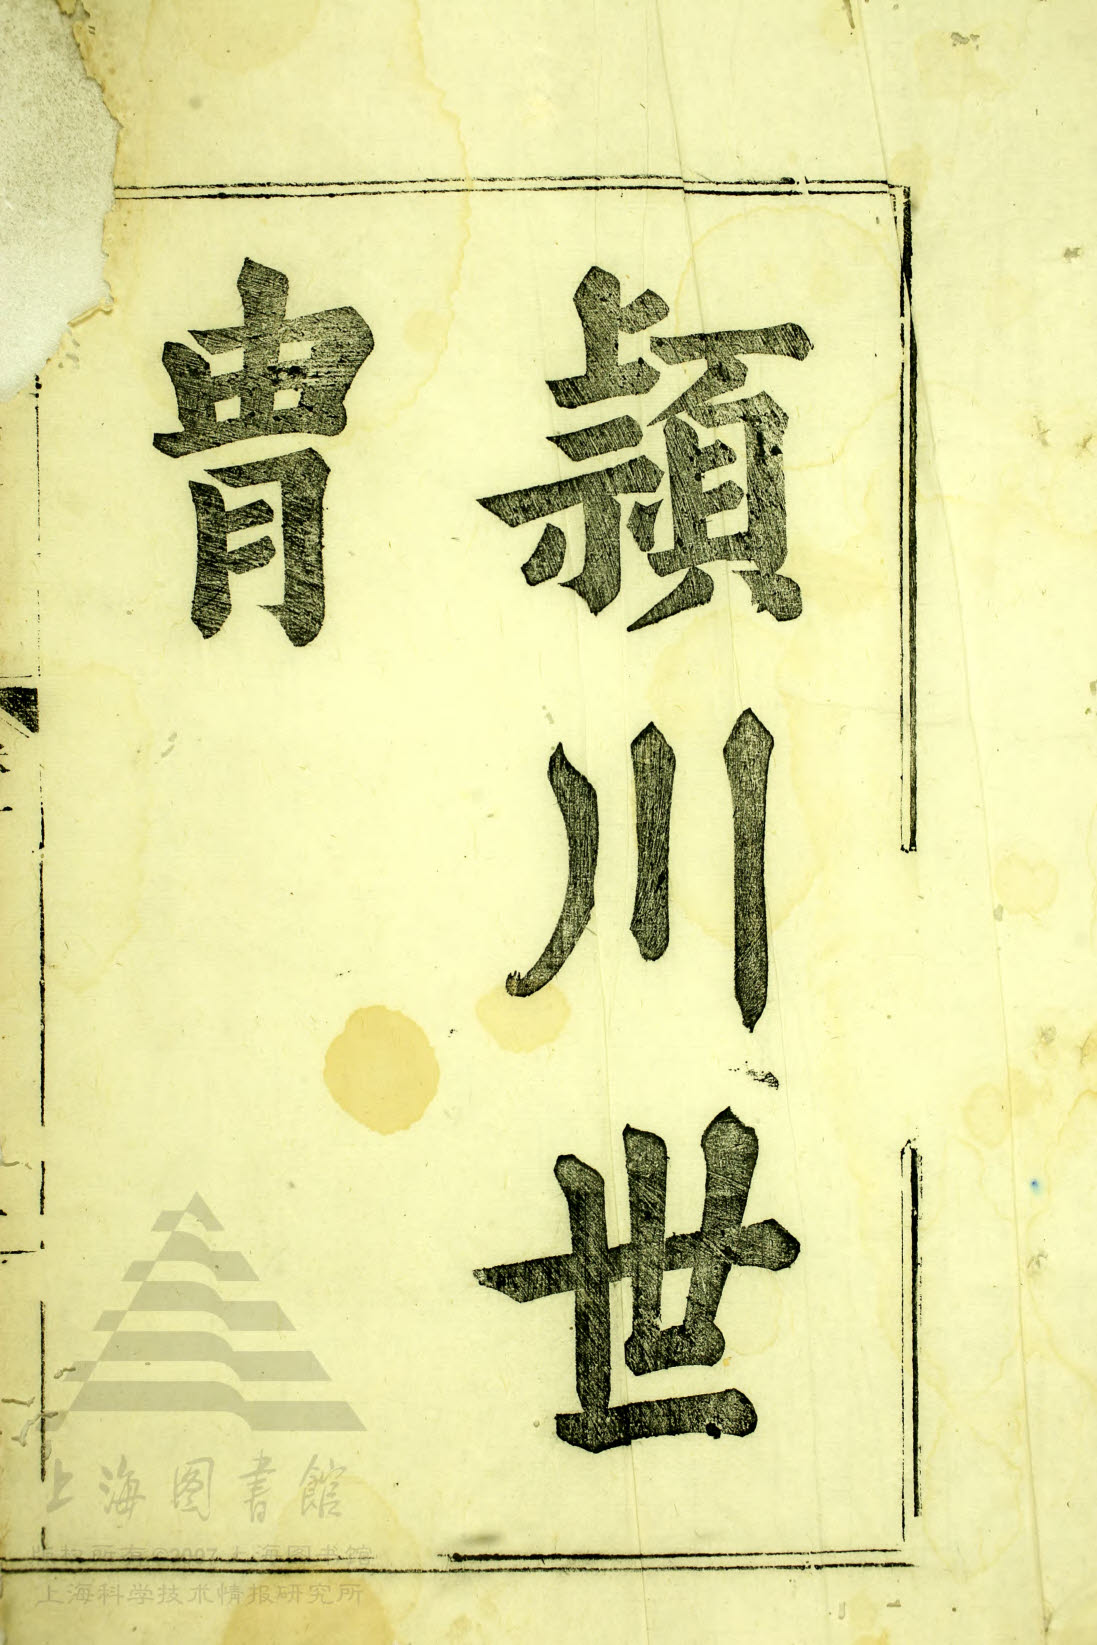 頴川世
胄
上海图書館
版权所有©2007上海图书馆
上海科学技术情报研究所